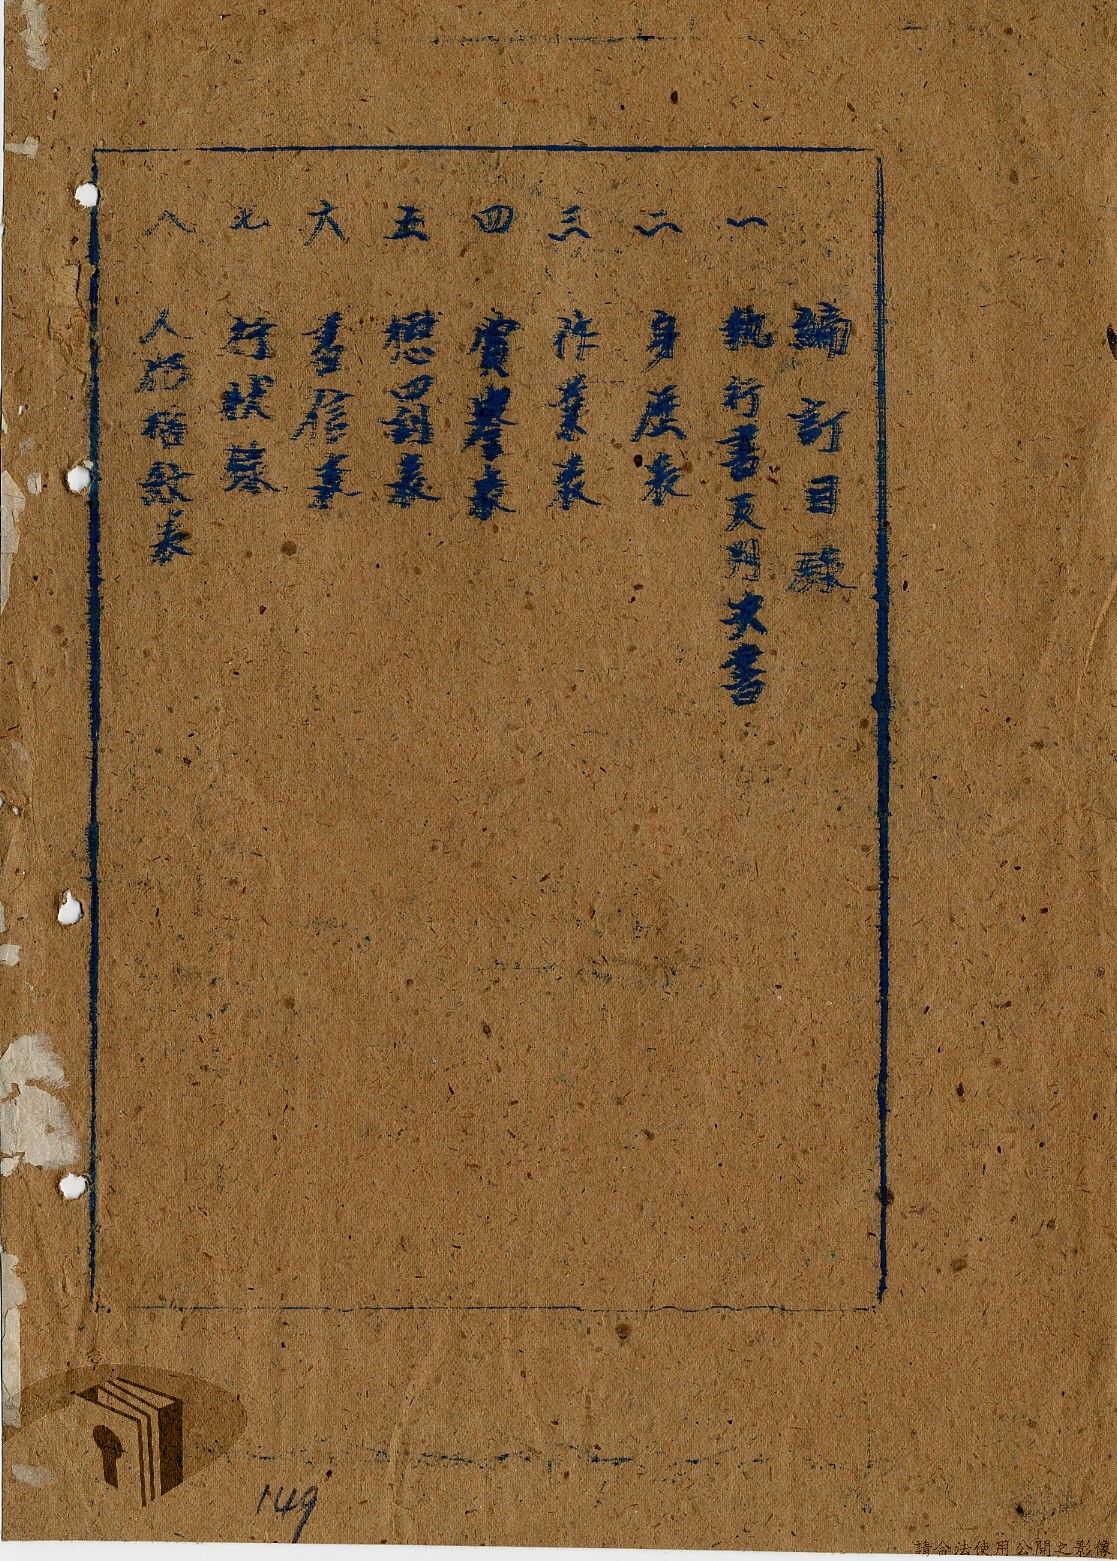 編訂目錄
一 執行書及判决書
二 身歷表
三 作業表
四 賞譽表
五 懲罰表
六 書信表
七 行狀錄
八 人物相貌表
149
請合法使用公開之影像